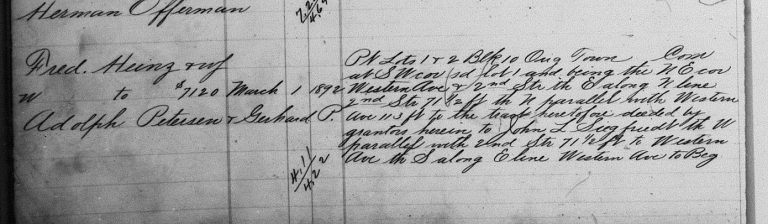 Herman Offerman
7.20
4.69
Fred. Heinz & wf
W to $7120 March 1 1892
Adolph Petersen & Gerhard P.
4.11
4.22
Pt Lots 1 & 2 Blk 10 Orig Town Com
at SW cor sd lot 1 and being the N E cor
Western Ave & 2nd Str th E along N line
2nd Str 71 1/2 ft th N parallel with Western
Ave 113 ft to the tract heretofore deeded by
grantors herein to John L Siegfriedt th W
parallel with 2nd Str 71 1/2 ft to Western
Ave th S along E line Western Ave to Beg